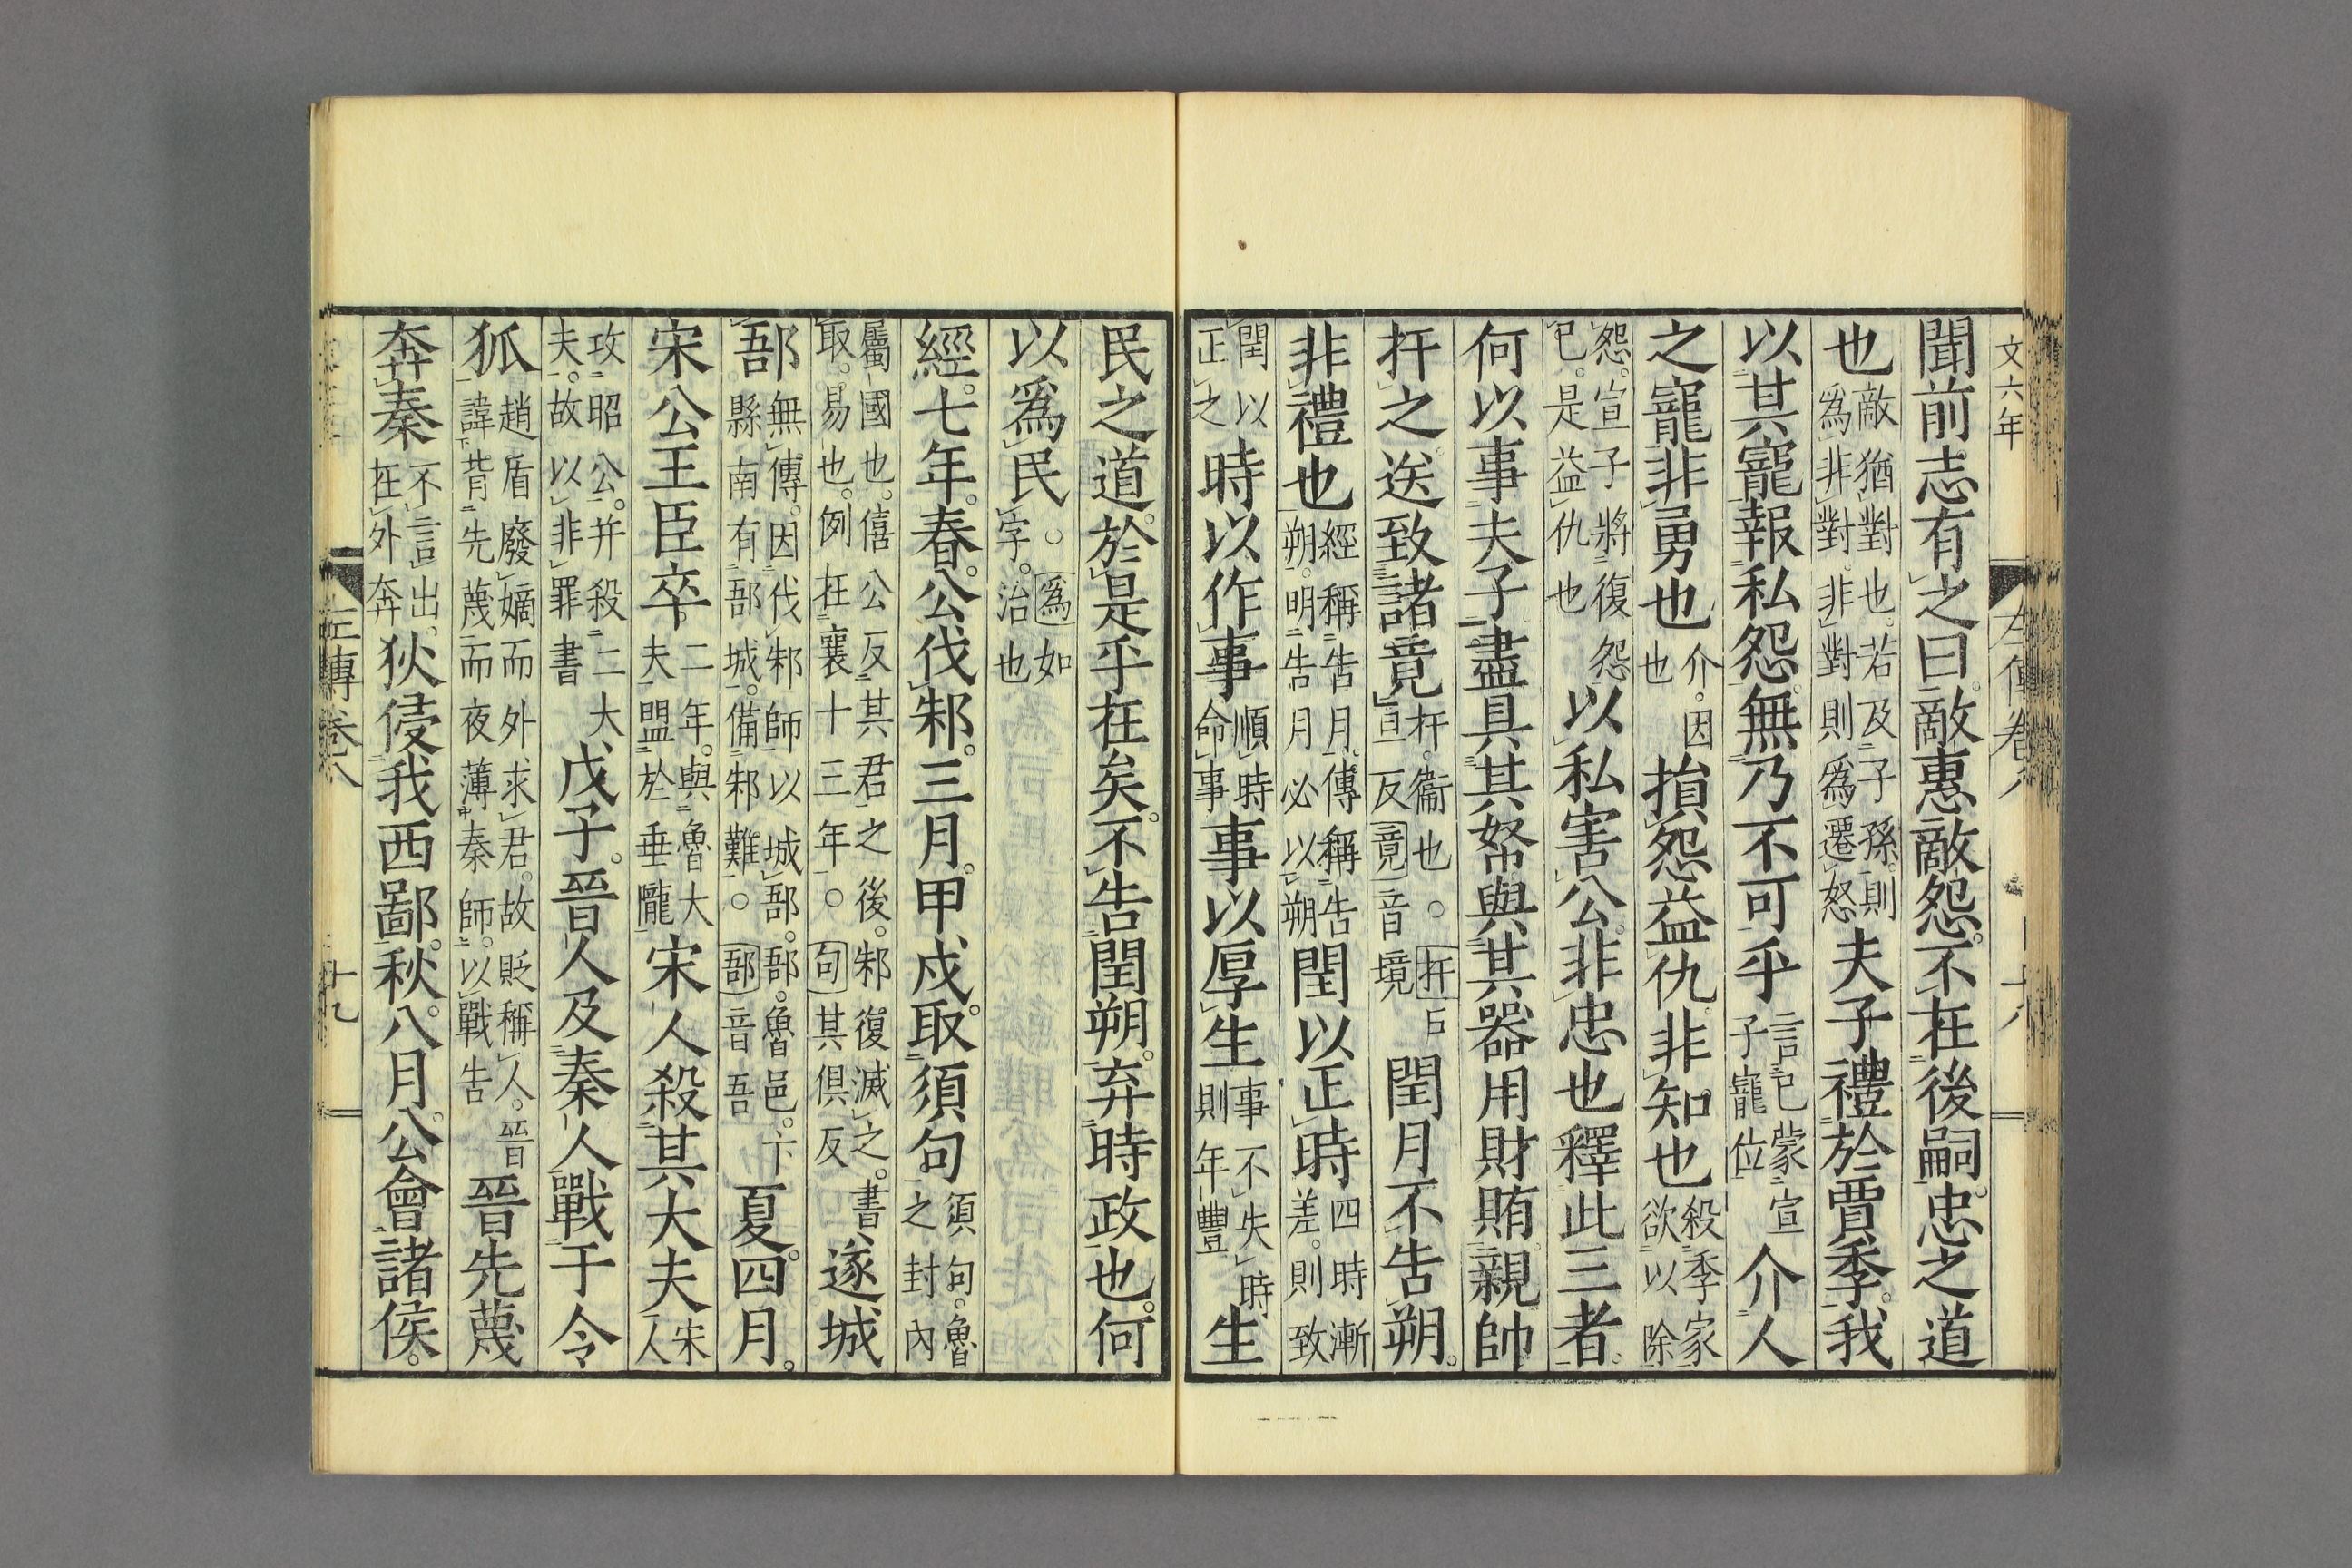 文六年
聞前志有之曰。敵惠敵怨。不在後嗣。忠之道
也敵猶對也。若及子孫。則爲非對。非對則爲遷怒夫子禮於賈季。我
以其寵報私怨。無乃不可乎言已蒙宣子寵位介人
之寵非勇也介。因也損怨益仇。非知也殺季家欲以除
怨。宣子將復怨已。是益仇也以私害公。非忠也釋此三者。
何以事夫子盡具其帑與其器用財賄。親帥
扞之。送致諸竟扞。衞也。○扞戶旦反竟音境閏月不告朔。
非禮也經稱告月。傳稱告朔。明告月必以朔閏以正時四時漸差。則致
閏以正之時以作事順時命事事以厚生事不失時則年豐生
民之道。於是乎在矣。不告閏朔。弃時政也。何
以爲民○爲如字。治也
經。七年。春。公伐邾。三月。甲戌。取須句須句。魯之封內
屬國也。僖公反其君之後。邾復滅之。書取。易也。例在襄十三年。○句其俱反遂城
郚無傳。因伐邾師以城郚。郚。魯邑。卞縣南有郚城。備邾難。○郚音吾夏。四月。
宋公王臣卒。二年。與魯大夫盟於垂隴宋人殺其大夫宋人
攻昭公。并殺二大夫。故以非罪書戊子。晉人及秦人戰于令
狐趙盾廢嫡而外求君。故貶稱人。晉諱背先蔑而夜薄秦師。以戰告晉先蔑
奔秦不言出。在外奔狄侵我西鄙。秋。八月。公會諸侯。
左傳卷八 十九